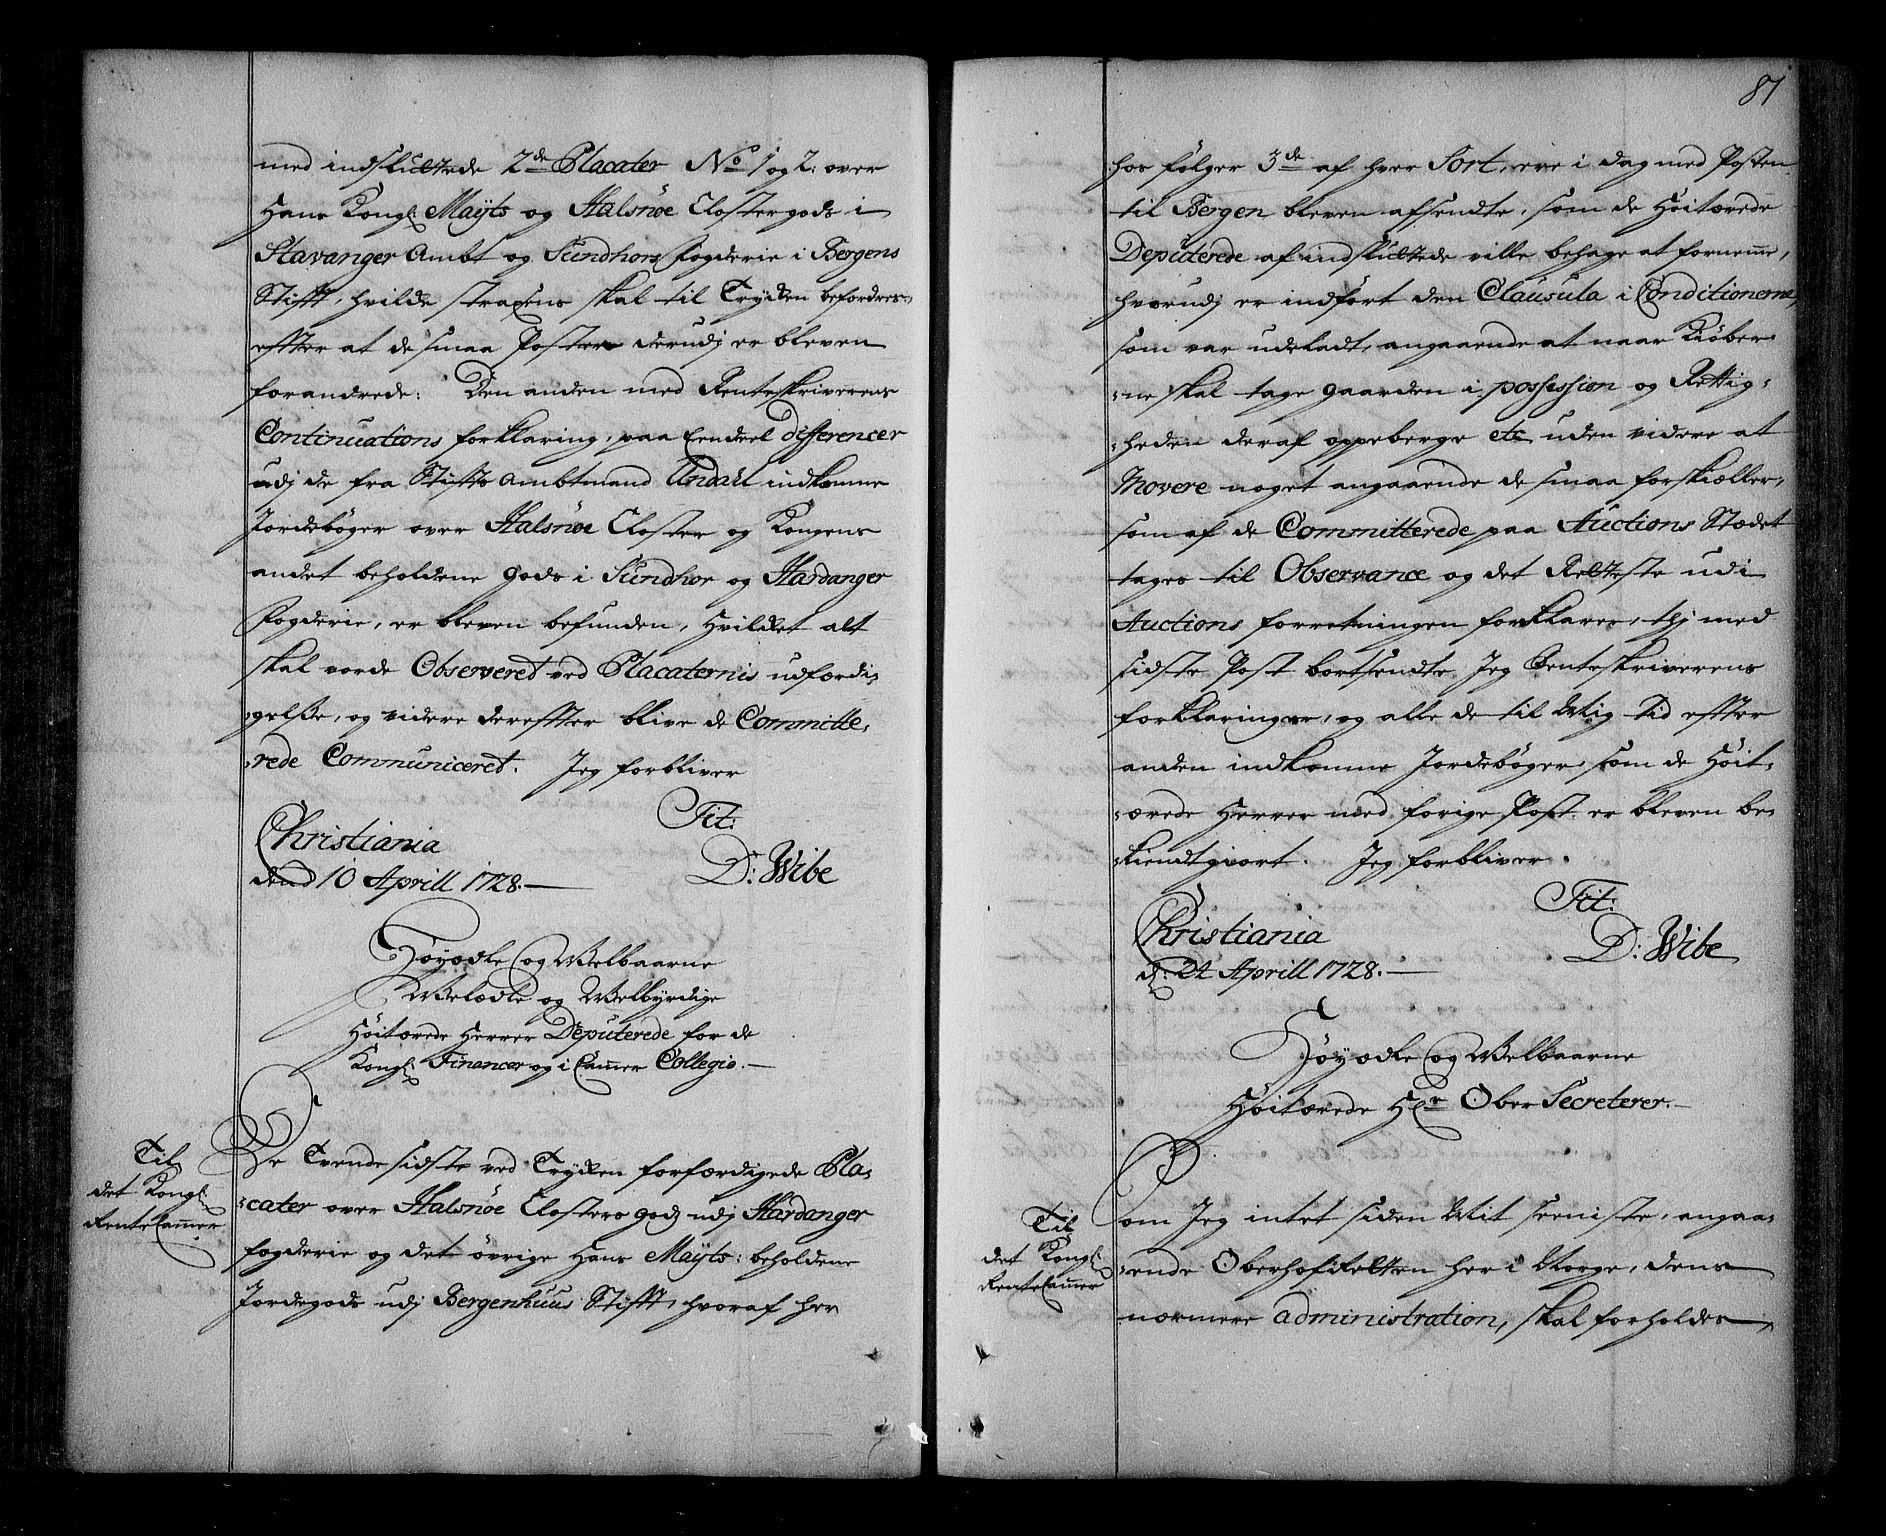 med indsluttede 2de Placater No 1 og 2: over
Hans Kongl: Mayts og Halsnöe Clostergods i
Stavanger Ambt og Sundhors fogderie i Bergens
Stifft, hvilke straxens skal til Trycken befordres
effter at de smaa Poster derudj er bleven
forandrede: Den anden med Renteskriverens
Continuations forklaring, paa Eendeel differencer
udj de fra Stiffts Ambtmand Undall indkomne
Jordebøger over Halsnöe Closter og Kongens
andet beholdene gods i Sundhor og Hardanger
fogderie, er bleven befunden, hvilket alt
skal vorde Observeret ved Placaternis udfærdi-
gelsse, og videre dereffter blive de Committe-
rede Communiceret. Jeg forbliver
Tit:
Christiania
dend 10 Aprill 1728.
D: Wibe
Høyædle og Welbaarne
Welædle og Welbyrdige
Høitærede Herrer Deputerede for de
Kongl: Financer og i Cammer Collegio.
Til
det Kongl:
RenteCammer
De Tvende sidste ved Trycken forfærdigede Pla-
cater over Halsnöe Closters gods udj Hardanger
fogderie og det øvrige Hans Mayts: beholdene
Jordegods udj Bergenhuus Stifft, hvoraf her
87
hos følger 3de af hver Sort, ere i dag med Posten
til Bergen bleven afsendte, som de Høitærede
Deputerede af indsluttede ville behage at fornemme,
hvorudj er indført den Clausula i Conditionerne,
som var udeladt, angaaende at naar Kiøber-
ne skal tage gaarden i possession og Rettig-
heden deraf oppeberge etc uden videre at
Movere noget angaaende de smaa forskiæller,
som af de Committerede paa Auctions Stædet
tages til Observance og det Retteste udi
Auctions forretningen forklarer, thj med
sidste Post bortsendte Jeg Renteskriverens
forklaringer, og alle de til Mig tid effter
anden indkomne Jordebøger, som de Høit-
ærede Herrer med forige Post er bleven be-
kiendtgiort. Jeg forbliver.
Tit:
Christiania
d: 24 Aprill 1728.
D: Wibe
Høyædle og Welbaarne
Høitærede Hr Ober Secreterer.
Til
det Kongl:
RenteCammer
Som Jeg intet siden Mit seeniste, angaa-
ende Oberhofretten her i Norge, dens
nærmere administration, skal forholdes,